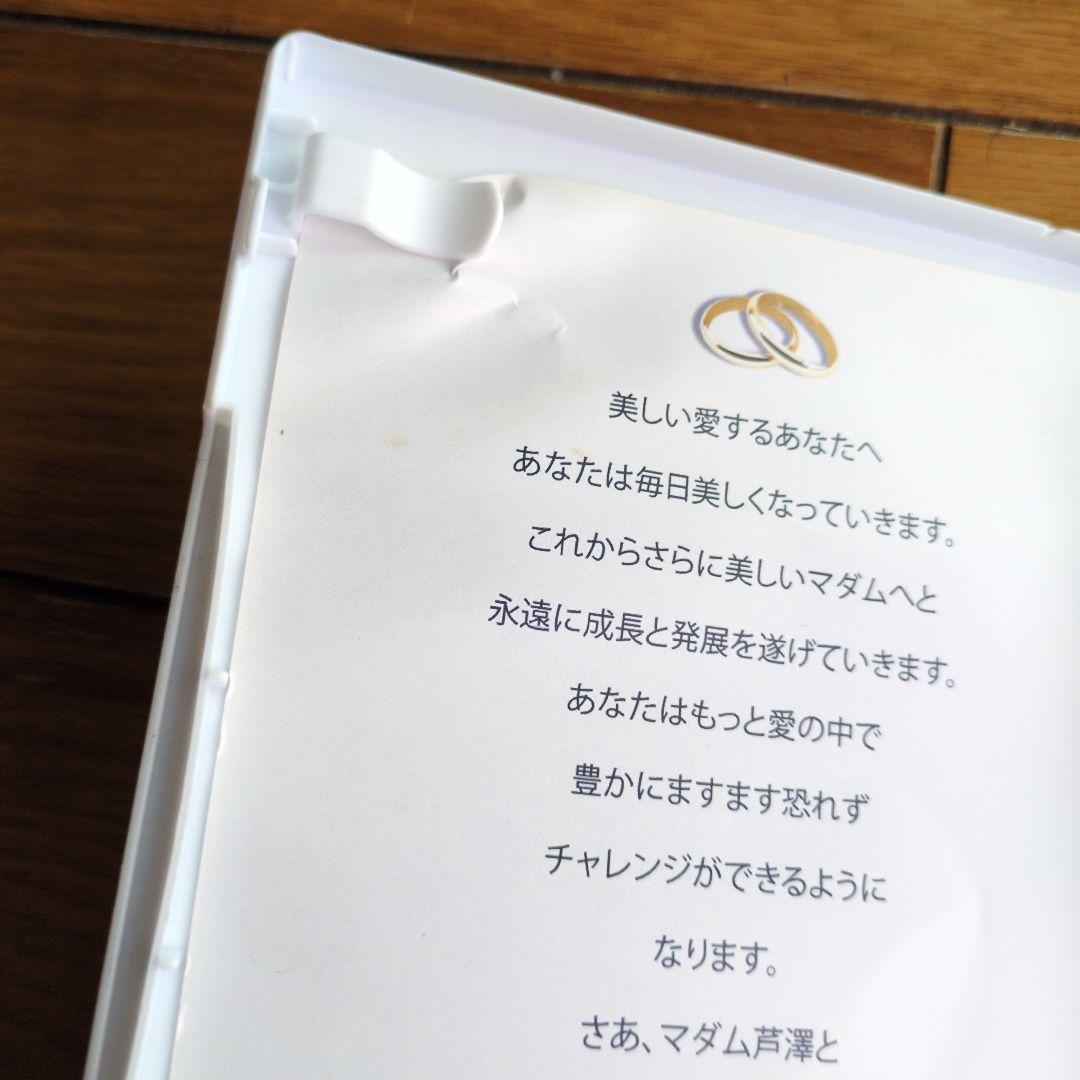 美しい愛するあなたへ
あなたは毎日美しくなっていきます。
これからさらに美しいマダムへと
永遠に成長と発展を遂げていきます。
あなたはもっと愛の中で
豊かにますます恐れず
チャレンジができるように
なります。
さあ、マダム芦澤と